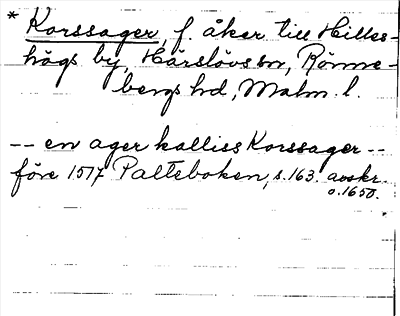 * Korssager, f. åker till Hilles-
högs by, Härslövs sn, Rönne-
bergs hd, Malm. l.
-- en ager kalliss Korssager --
före 1517 Palteboken, s. 163. avskr.
o. 1650.